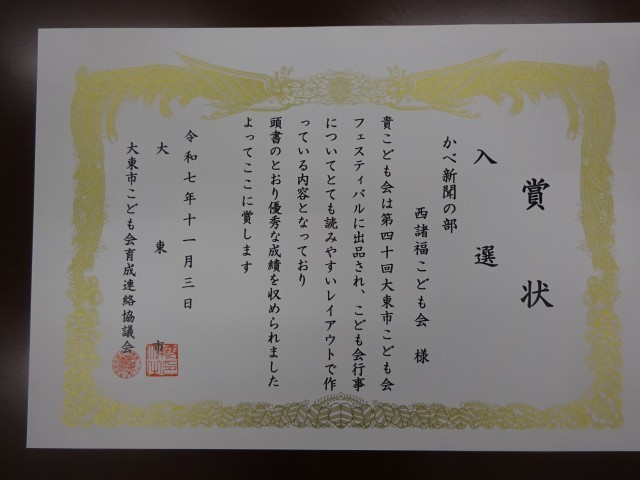 賞状
入選
かべ新聞の部
西諸福こども会 様
貴こども会は第四十回大東市こども会
フェスティバルに出品され、こども会行事
についてとても読みやすいレイアウトで作
っている内容となっており
頭書のとおり優秀な成績を収められました
よってここに賞します
令和七年十一月三日
大東市
大東市こども会育成連絡協議会